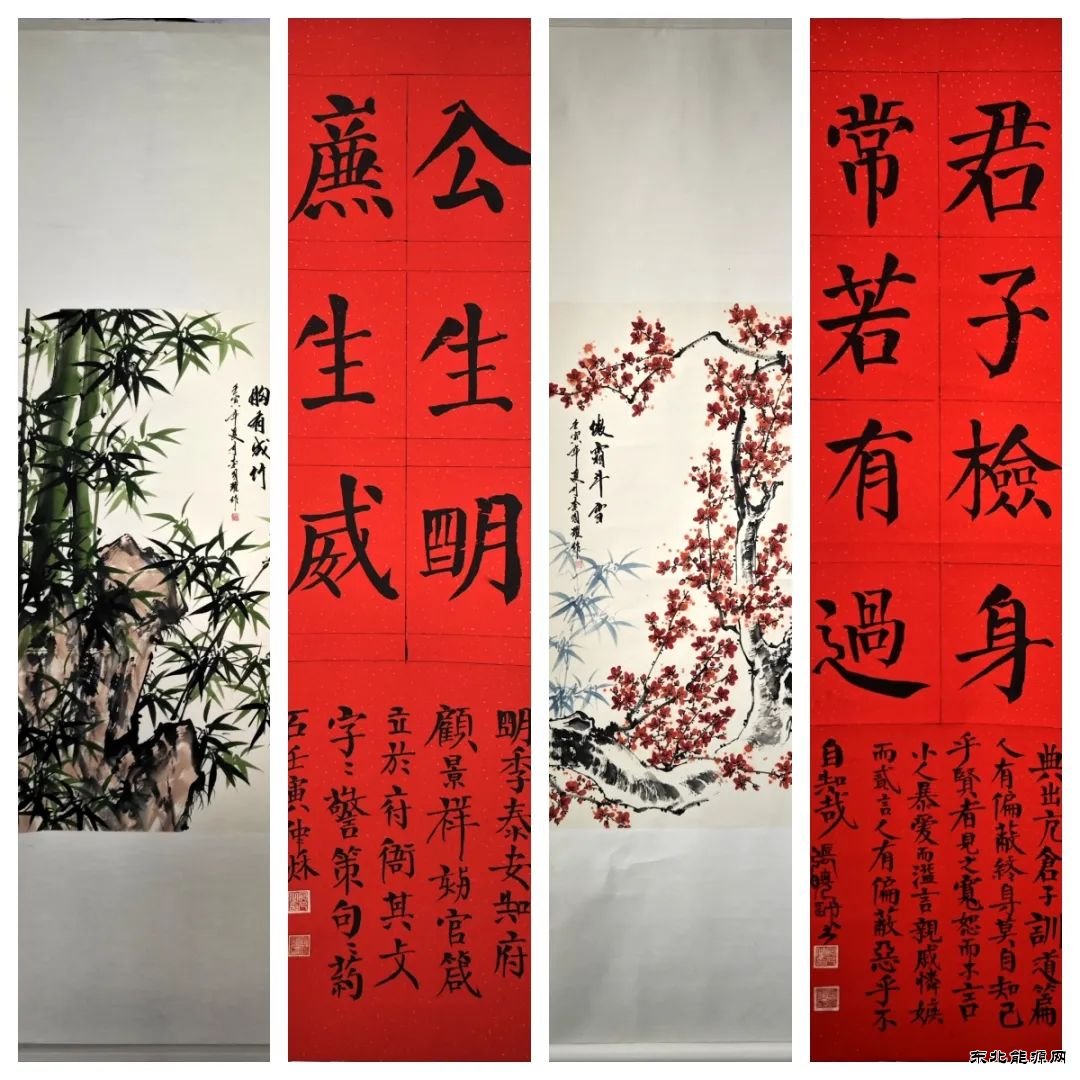 胸有成竹
壬寅年夏月
公生明
廉生威
明季泰安知府
顧景祥刻官箴
立於府衙其文
字〻警策句〻药
石壬寅仲秋
傲霜斗雪
壬寅年夏月
君子檢身
常若有過
典出亢倉子訓道篇
人有偏蔽終身莫自知己
乎賢者見之寬恕而不言
小人暴愛而溢言親戚憐嫉
而貳言人有偏蔽惡乎不
自知哉
东北能源网